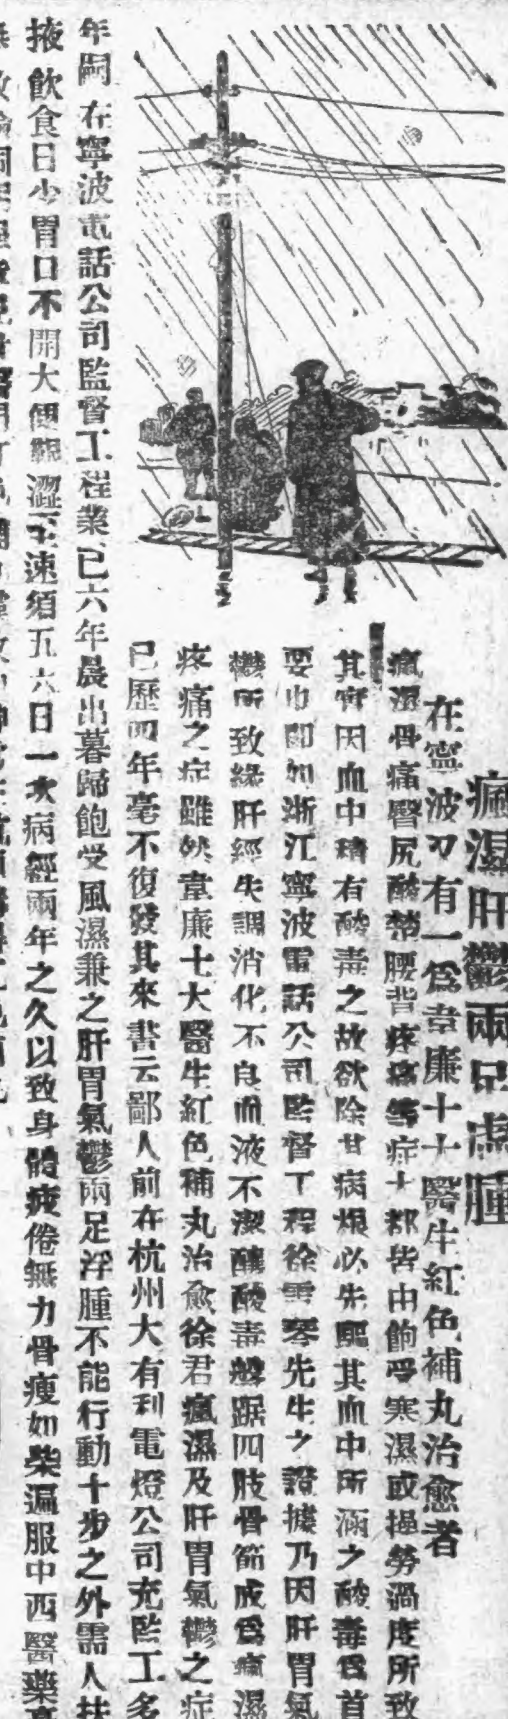 瘋濕肝鬱兩足虛腫
在寧波又有一爲韋廉士大醫生紅色補丸治愈者
瘋濕骨痛臀尻酸楚腰背疼痛等症大都皆由飽受寒濕或操勞過度所致
其實因血中積有酸毒之故欲除其病根必先驅其血中所涵之酸毒爲首
要也即如浙江寧波電話公司監督工程徐雲琴先生之證據乃因肝胃氣
鬱所致緣肝經失調消化不良血液不潔釀酸毒盤踞四肢骨節成爲瘋濕
疼痛之症雖然韋廉士大醫生紅色補丸治愈徐君瘋濕及肝胃氣鬱之症
已歷四年毫不復發其來書云鄙人前在杭州大有利電燈公司充監工多
年嗣在寧波電話公司監督工程業已六年晨出暮歸飽受風濕兼之肝胃氣鬱兩足浮腫不能行動十步之外需人扶
掖飲食日少胃口不開大便艱澀至速須五六日一次病經兩年之久以致身體疲倦無力骨瘦如柴遍服中西醫藥